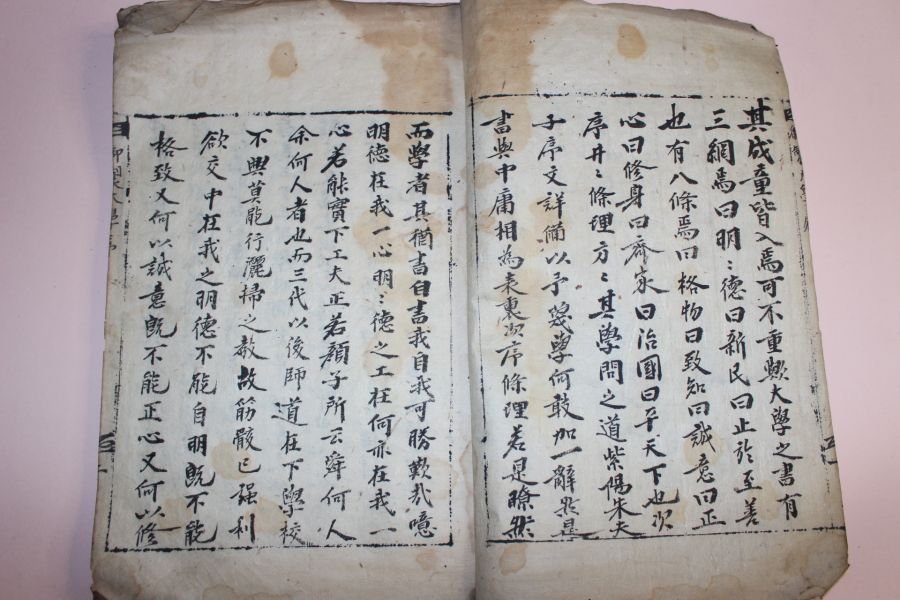 其成童皆入焉可不重歟大學之書有
三綱焉曰明〻德曰新民曰止於至善
也有八條焉曰格物曰致知曰誠意曰正
心曰修身曰齊家曰治國曰平天下也次
序井〻條理方〻其學問之道紫陽朱夫
子序文詳備以予蔑學何敢加一辭於是
書與中庸相為表裏次序條理若是瞭然
而學者其猶書自書我自我可勝歎哉噫
明德在我一心明〻德之工在何亦在我一
心若能實下工夫正若顏子所云舜何人
余何人者也而三代以後師道在下學校
不興莫能行灑掃之敎故筋骸已强利
欲交中在我之明德不能自明旣不能
格致又何以誠意旣不能正心又何以修
御製大學序